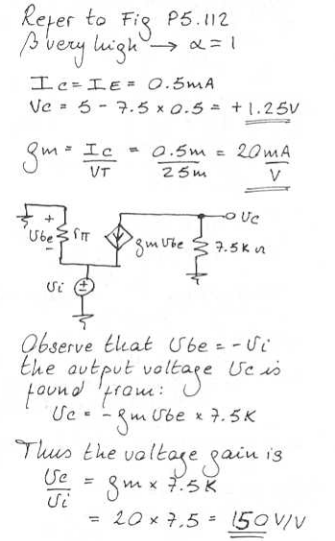 Refer to Fig P5.112
β very high → α = 1
IC = IE = 0.5mA
VC = 5 - 7.5 x 0.5 = +1.25V
gm = IC/VT = 0.5m/25m = 20 mA/V
+
Ube
-
rπ
gm Ube
Uc
7.5K Ω
Ui
Observe that Ube = -Ui
the output voltage Uc is
found from:
Uc = -gm Ube x 7.5K
Thus the voltage gain is
Uc/Ui = gm x 7.5K
= 20 x 7.5 = 150 V/V